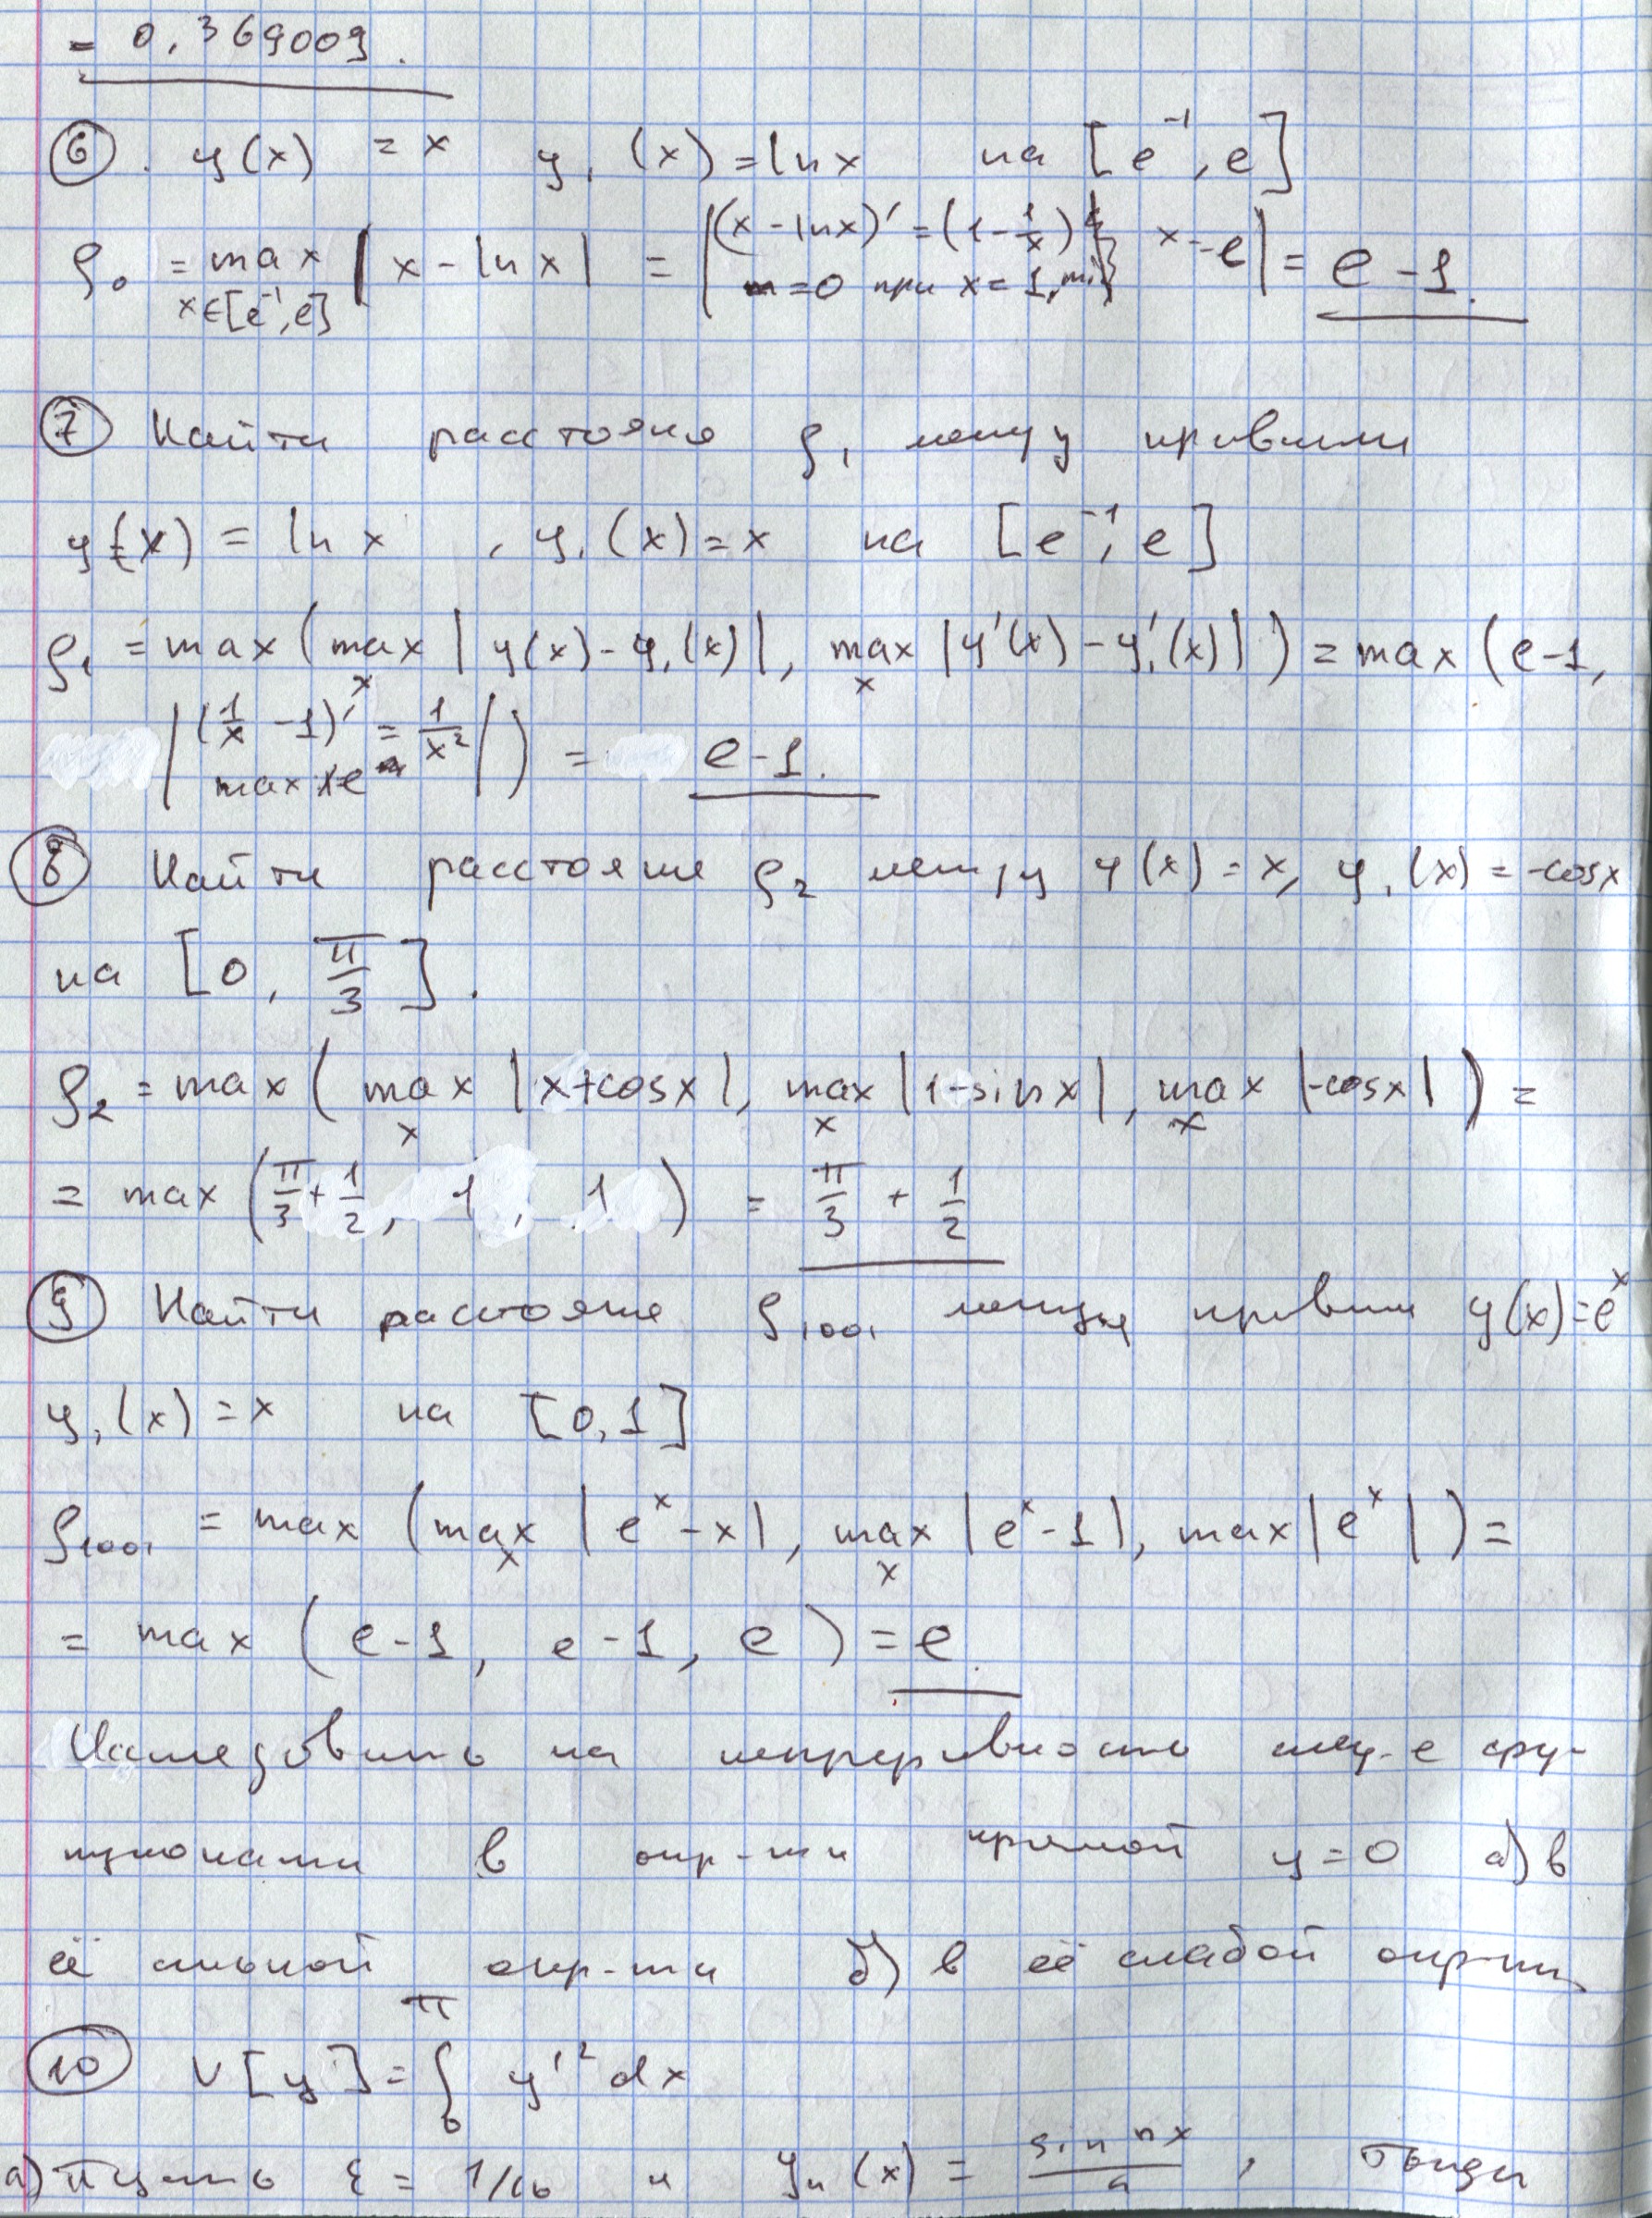 = 0,369009.
⑥. y(x) = x y₁(x) = ln x на [e⁻¹, e]
ρ₀ = max_{x∈[e⁻¹,e]} |x - ln x| = |(x - ln x)' = (1 - 1/x) = 0 при x = 1, min} x = e| = e - 1.
⑦ Найти расстояние ρ₁ между кривыми
y(x) = ln x , y₁(x) = x на [e⁻¹, e]
ρ₁ = max (max_x |y(x) - y₁(x)|, max_x |y'(x) - y₁'(x)|) = max (e-1,
|(1/x - 1)' = 1/x² max x e|) = e-1.
⑧ Найти расстояние ρ₂ между y(x) = x, y₁(x) = -cosx
на [0, π/3].
ρ₂ = max ( max_x |x+cosx|, max_x |1-sinx|, max_x |-cosx| ) =
= max (π/3 + 1/2, 1, 1) = π/3 + 1/2
⑨ Найти расстояние ρ₁₀₀₁ между кривыми y(x) = eˣ
y₁(x) = x на [0,1]
ρ₁₀₀₁ = max (max_x |eˣ - x|, max_x |eˣ - 1|, max |eˣ|) =
= max (e-1, e-1, e) = e.
Исследовать на непрерывность след-е фу-
нкционалы в окр-ти прямой y=0 а) в
её сильной окр-ти б) в её слабой окр-ти
⑩ V[y] = ∫₀^π y'² dx
а) Пусть ε = 1/10 и yₙ(x) = sin nx / n ,